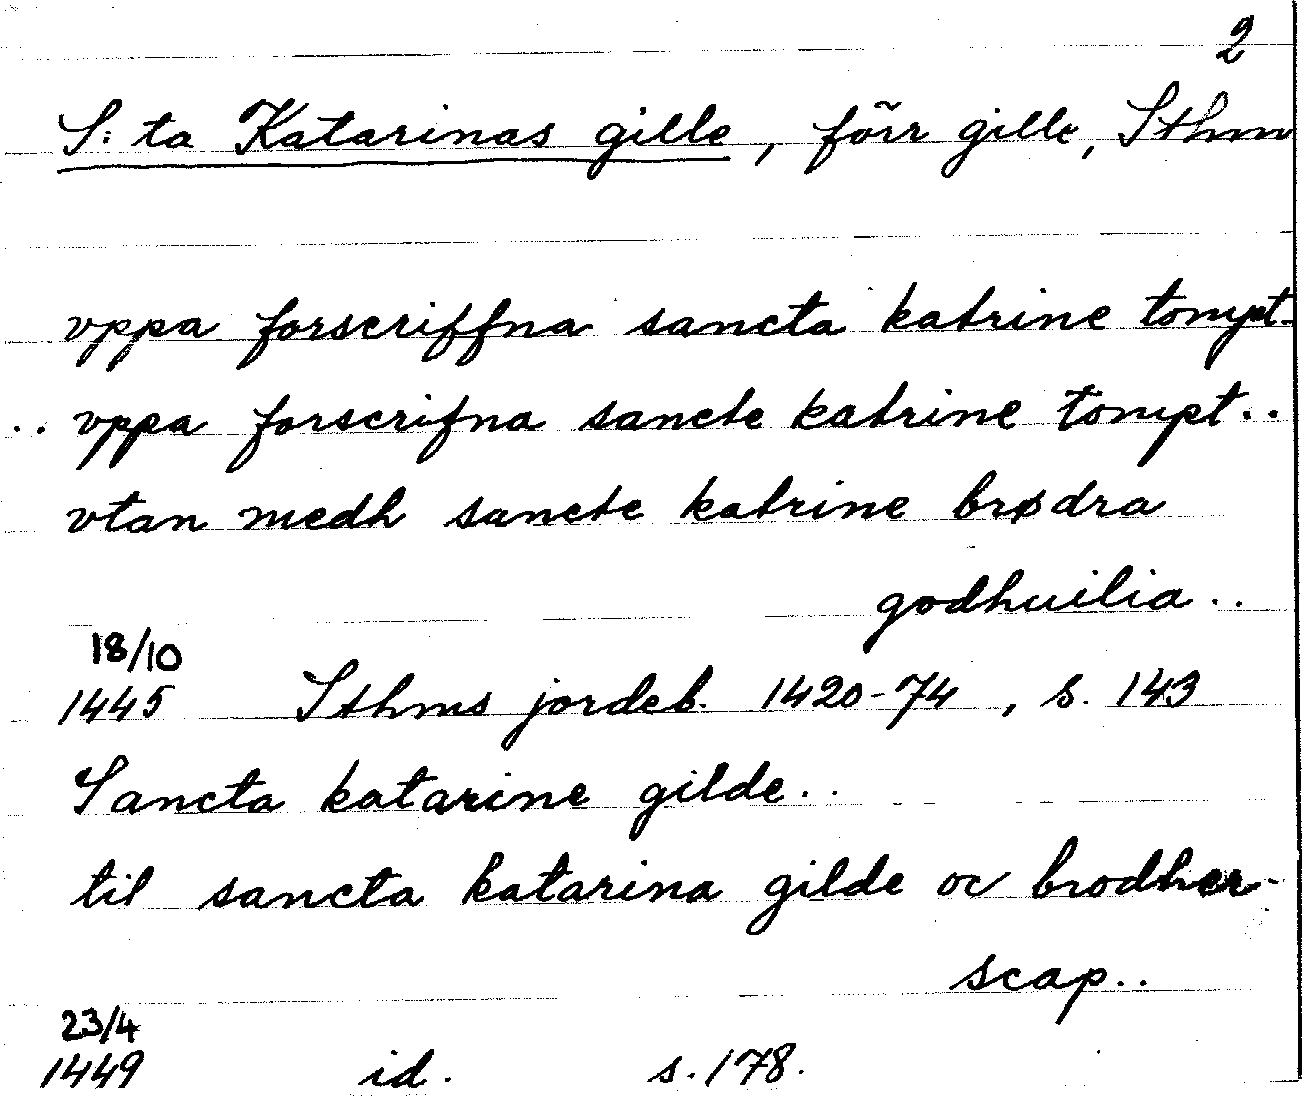 2
S:ta Katarinas gille, förr gille, Sthm
vppa forscriffna sancta katrine tompt..
.. vppa forscrifna sancte katrine tompt..
vtan medh sancte katrine brødra
godhuilia..
18/10
1445 Sthms jordeb. 1420-74, s. 143
Sancta katarine gilde..
til sancta katarina gilde oc brodher-
scap..
23/4
1449 id. s. 178.